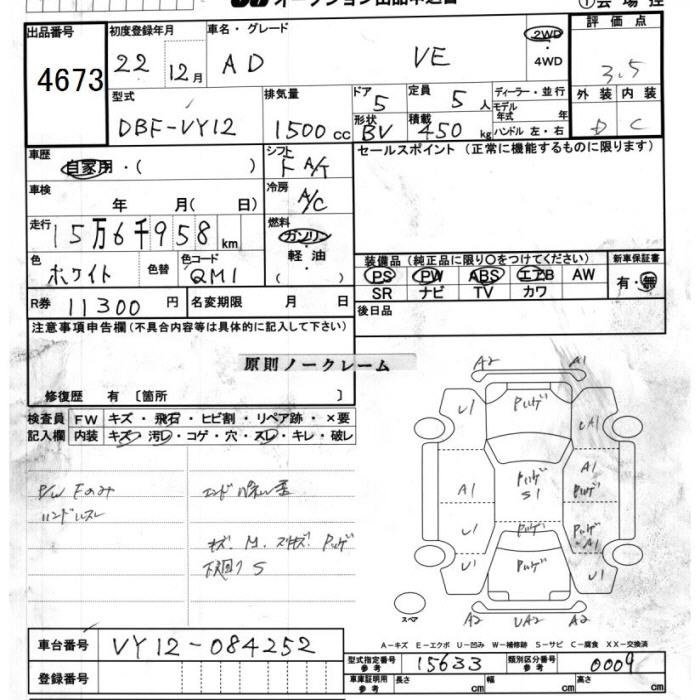 オークション出品申込書
①会場控
出品番号
4673
初度登録年月
22 12月
車名・グレード
AD VE
2WD
4WD
評価点
3.5
型式
DBF-VY12
排気量
1500cc
ドア
5
定員
5人
形状
BV
積載
450kg
ディーラー・並行
モデル年式 年
ハンドル 左・右
外装 内装
D C
車歴
自家用・( )
シフト
F A/T
セールスポイント (正常に機能するものに限ります)
車検
年 月( 日)
冷房
A/C
走行
15万6千958km
燃料
ガソリン
・
軽油
( )
色
ホワイト
色替
色コード
QM1
装備品(純正品に限り○をつけてください)
PS PW ABS エアB AW
SR ナビ TV カワ
新車保証書
有・無
R券 11300円
名変期限 月 日
後日品
注意事項申告欄(不具合内容等は具体的に記入して下さい)
原則ノークレーム
修復歴 有〔箇所 〕
検査員
記入欄
FW キズ・飛石・ヒビ割・リペア跡・×要
内装 キズ・汚レ・コゲ・穴・スレ・キレ・破レ
P/W Fのみ
ハンドルスレ
キズ.M.スリキズ.Pハゲ
下廻り S
A2 A1
U1 Pハゲ UA1
A1 Pハゲ S1 A1 Pハゲ
U1 Pハゲ Pハゲ A1
U1 Pハゲ U1
A2 UA2 A2
スペア
A-キズ E-エクボ U-凹み W-補修跡 S-サビ C-腐食 XX-交換済
車台番号 VY12-084252
型式指定番号 参考 15633
類別区分番号 参考 0009
登録番号
車庫証明用 参考 長さ cm 幅 cm 高さ cm